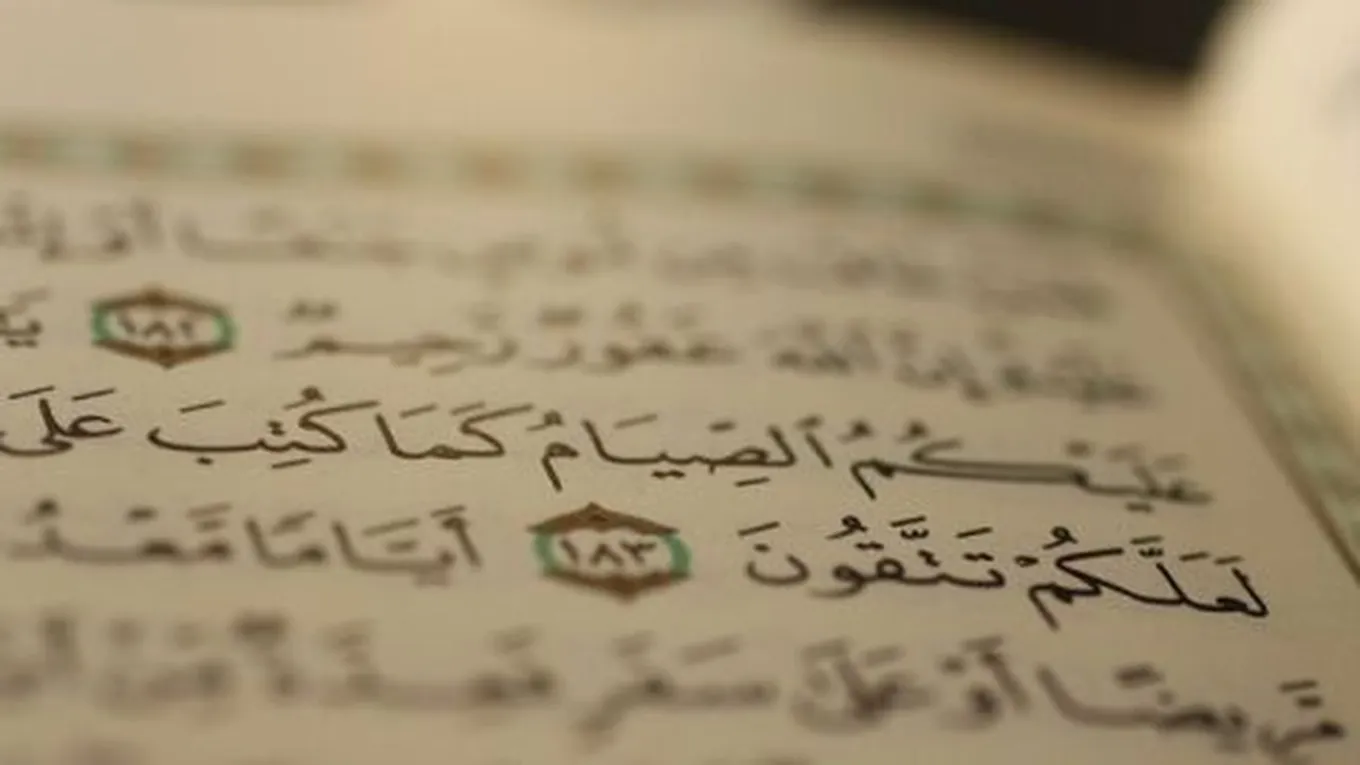 جَنَفًا أَوْ
عَلَيْهِ إِنَّ ٱللَّهَ غَفُورٌ رَّحِيمٌ ١٨٢
عَلَيْكُمُ ٱلصِّيَامُ كَمَا كُتِبَ عَلَى
لَعَلَّكُمْ تَتَّقُونَ ١٨٣ أَيَّامًا مَّعْدُ
مَّرِيضًا أَوْ عَلَىٰ سَفَرٍ فَعِدَّةٌ مِّنْ